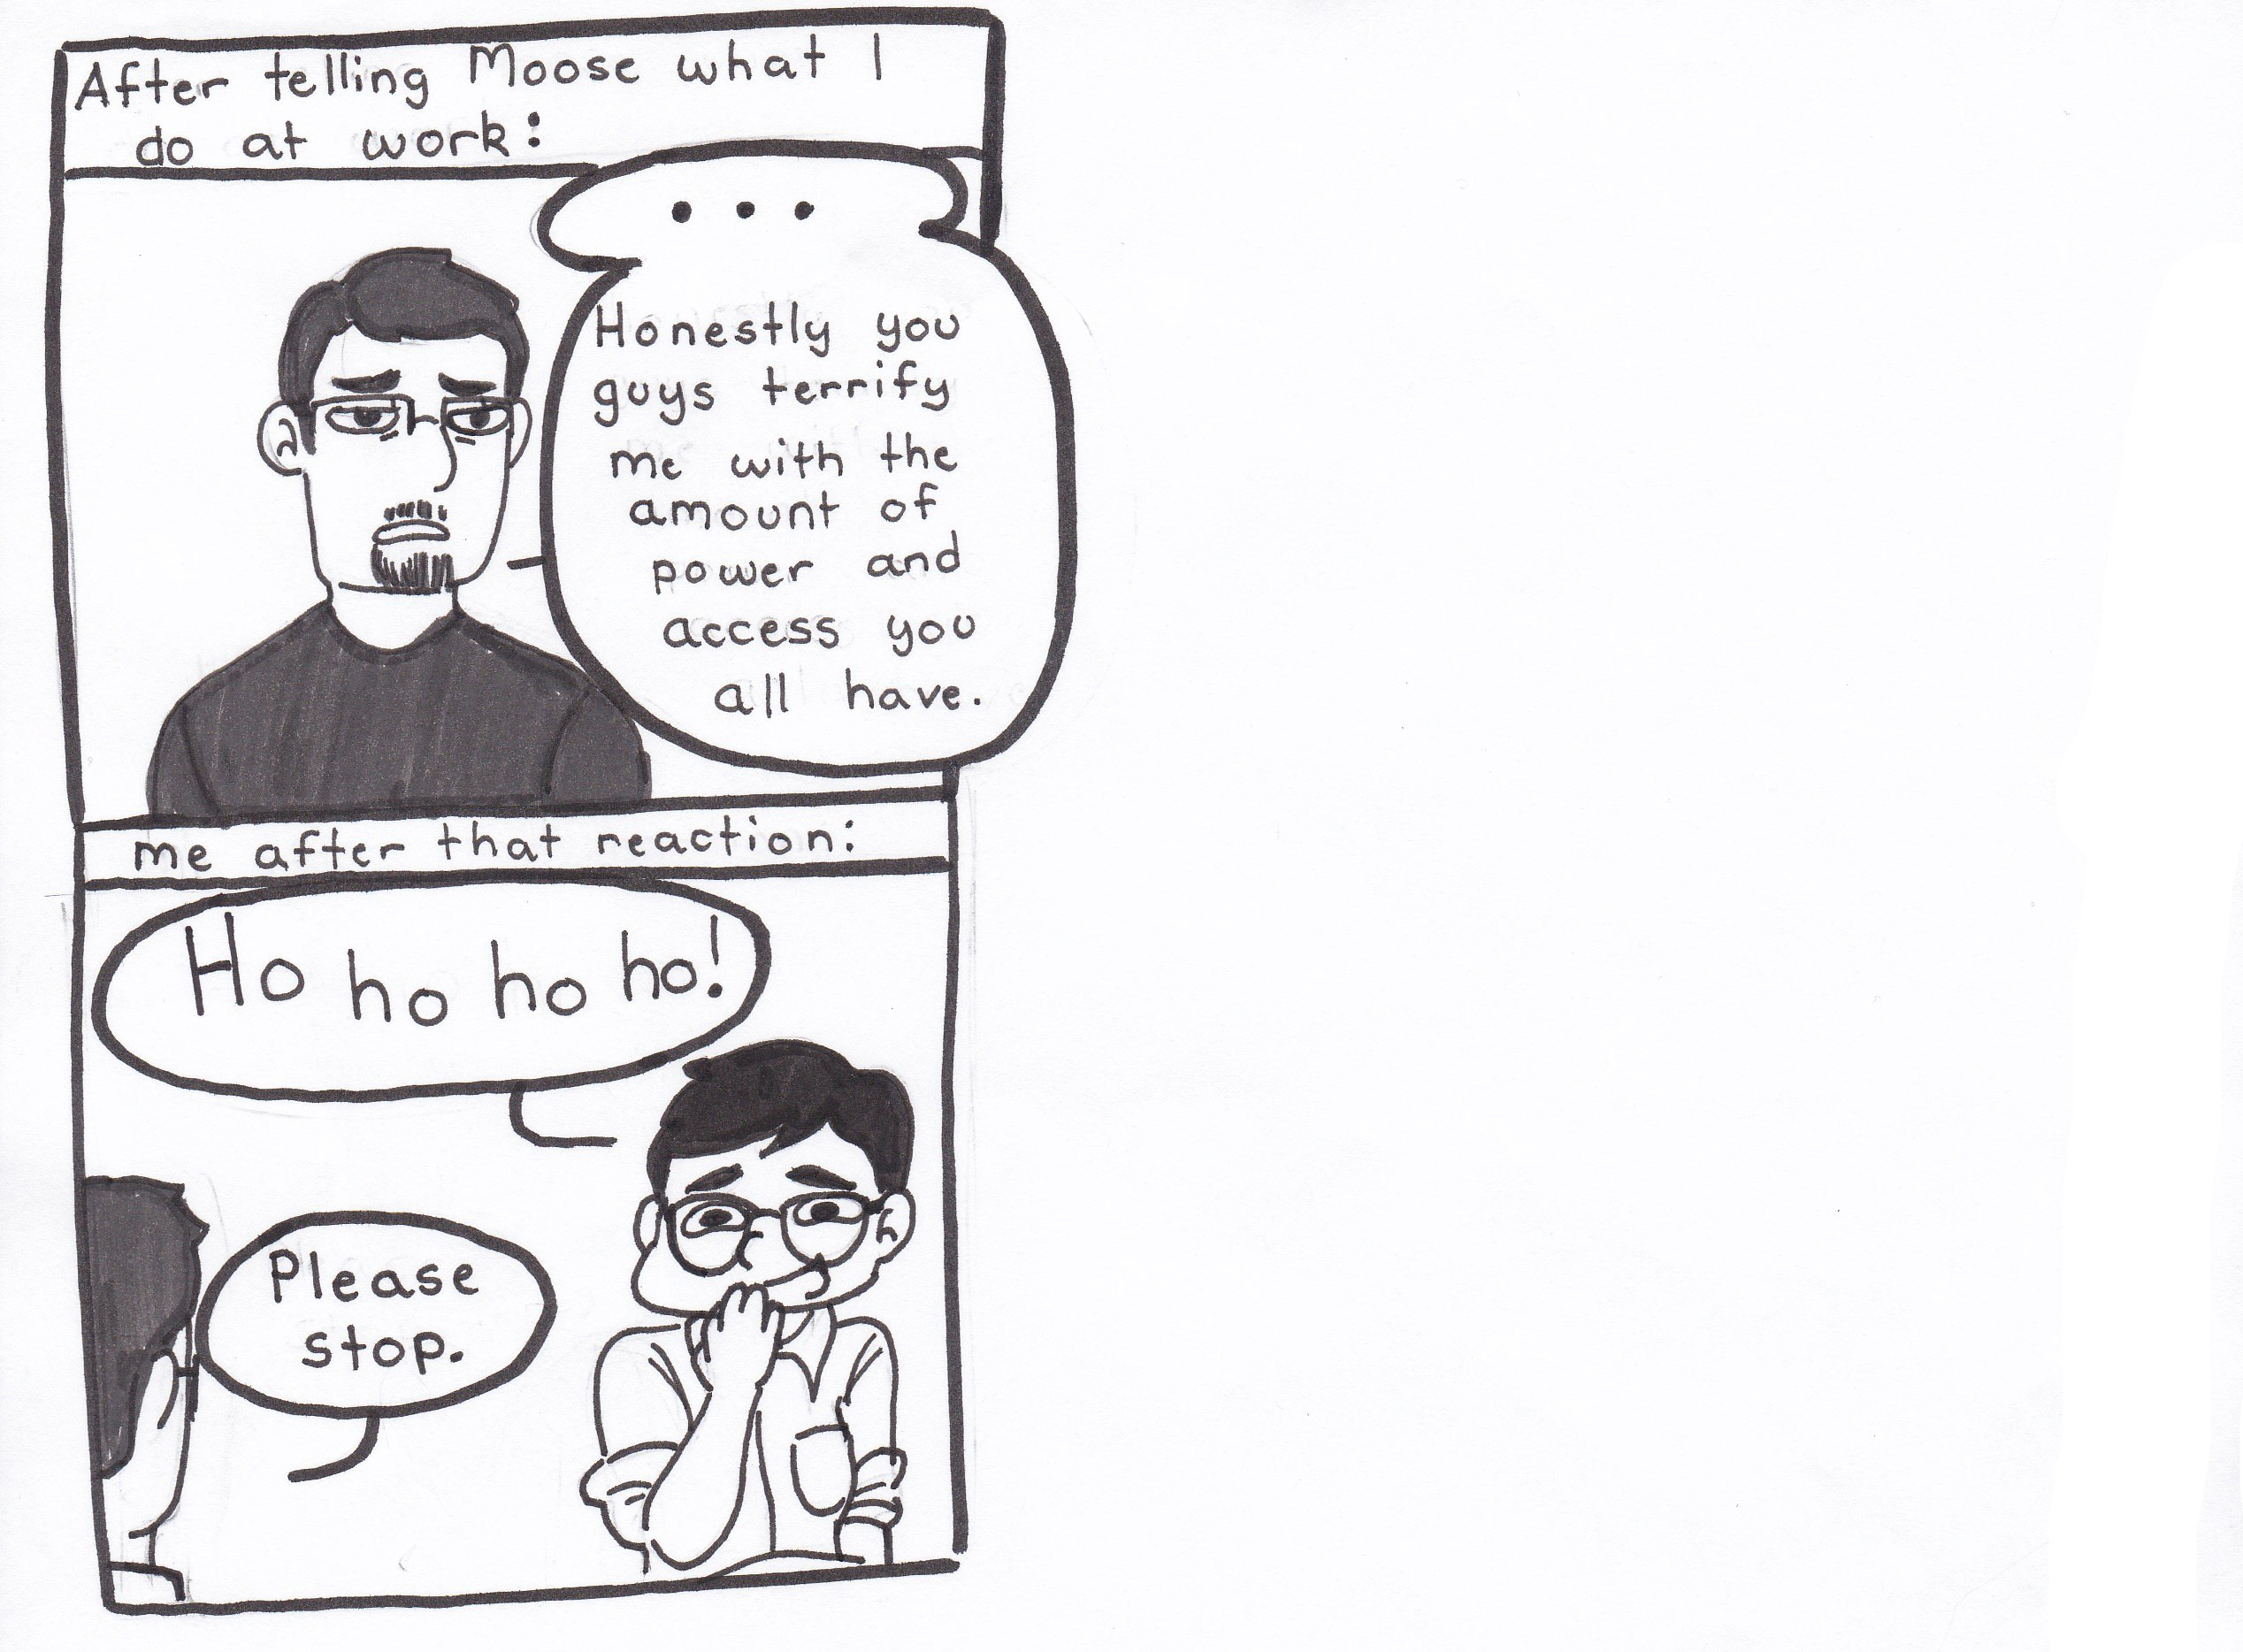 After telling Moose what I
do at work:
...
Honestly you
guys terrify
me with the
amount of
power and
access you
all have.
me after that reaction:
Ho ho ho ho!
Please
stop.